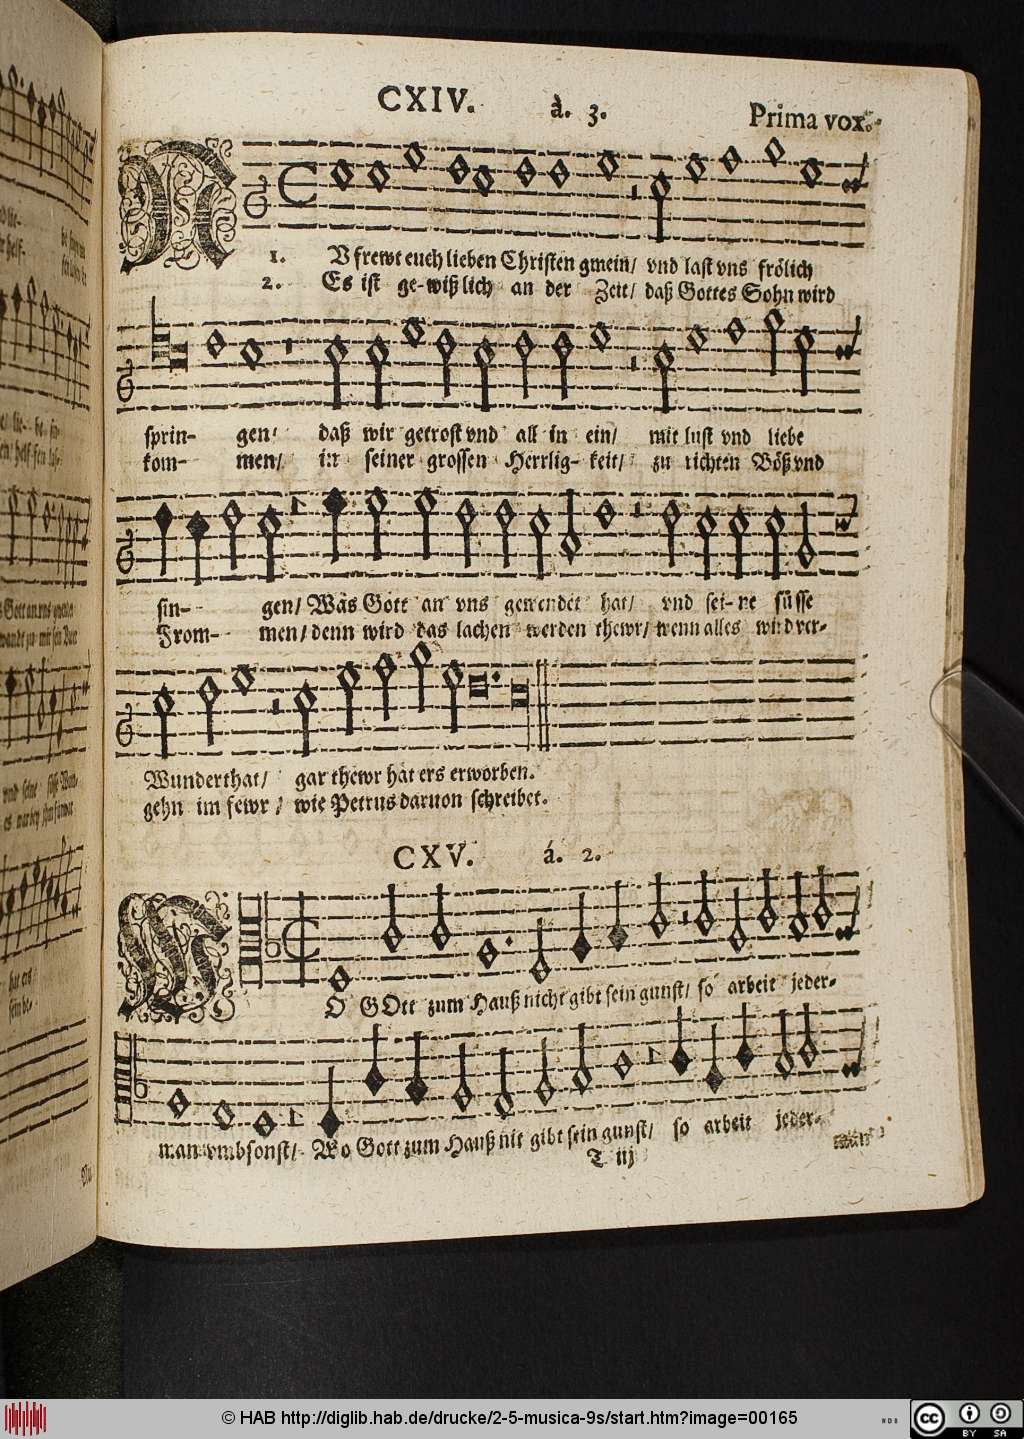 CXIV. à. 3. Prima vox.
N
1. V frewt euch lieben Christen gmein/ vnd last vns frölich
2. Es ist ge-wißlich an der Zeit/ daß Gottes Sohn wird
sprin- gen/ daß wir getrost vnd all in ein/ mit lust vnd liebe
kom- men/ in seiner grossen Herrlig- keit/ zu richten Böß vnd
sin- gen/ Was Gott an vns gewendet hat/ vnd sei- ne süsse
From- men/ denn wird das lachen werden thewr/ wenn alles wird ver-
Wunderthat/ gar thewr hat ers erworben.
gehn im fewr/ wie Petrus daruon schreibet.
CXV. á. 2.
W
O GOtt zum Hauß nicht gibt sein gunst/ so arbeit jeder-
man vmbsonst/ Wo Gott zum Hauß nit gibt sein gunst/ so arbeit jeder-
T iij
© HAB http://diglib.hab.de/drucke/2-5-musica-9s/start.htm?image=00165
cc BY SA